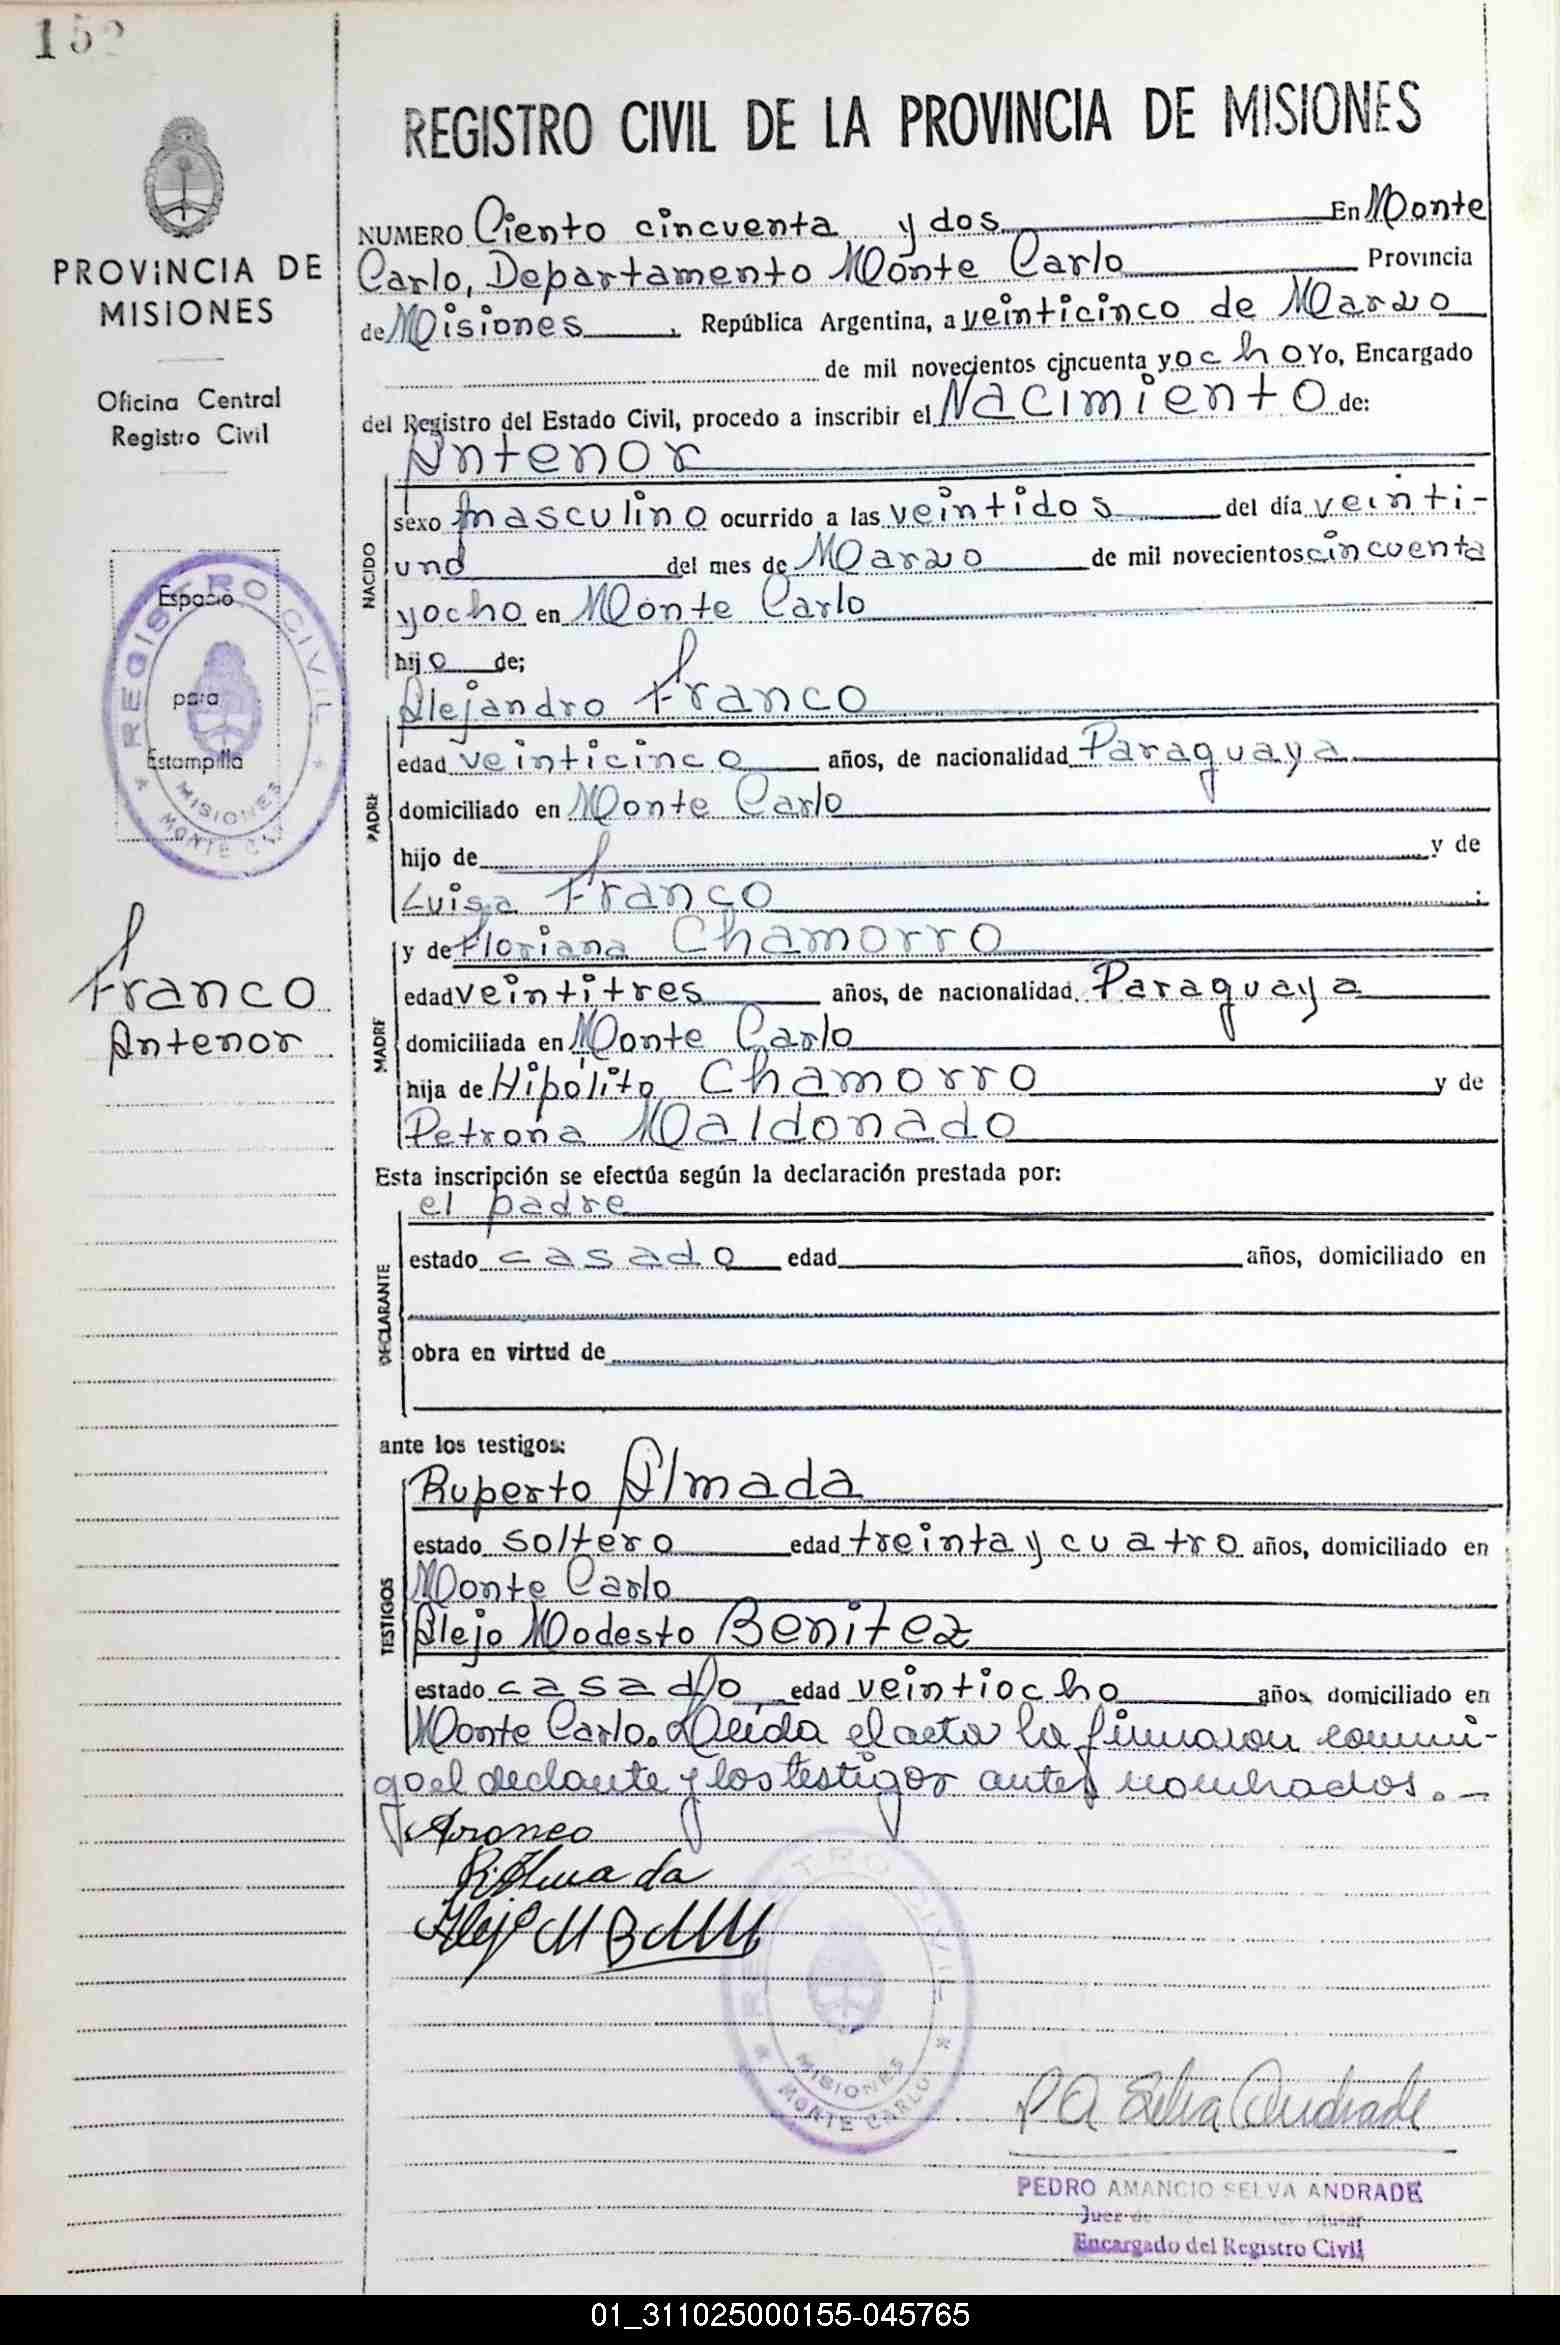 152
REGISTRO CIVIL DE LA PROVINCIA DE MISIONES
PROVINCIA DE
MISIONES
Oficina Central
Registro Civil
Espacio
para
Estampilla
REGISTRO CIVIL
MISIONES
MONTE CARLO
Franco
Antenor
NUMERO Ciento cincuenta y dos En Monte
Carlo, Departamento Monte Carlo Provincia
de Misiones, República Argentina, a veinticinco de Marzo
de mil novecientos cincuenta y ocho Yo, Encargado
del Registro del Estado Civil, procedo a inscribir el Nacimiento de:
Antenor
NACIDO
sexo masculino ocurrido a las veintidos del día veinti-
uno del mes de Marzo de mil novecientos cincuenta
y ocho en Monte Carlo
hijo de;
Alejandro Franco
PADRE
edad veinticinco años, de nacionalidad Paraguaya
domiciliado en Monte Carlo
hijo de y de
Luisa Franco ;
MADRE
y de Floriana Chamorro
edad veintitres años, de nacionalidad Paraguaya
domiciliada en Monte Carlo
hija de Hipólito Chamorro y de
Petrona Maldonado
Esta inscripción se efectúa según la declaración prestada por:
el padre
DECLARANTE
estado casado edad años, domiciliado en
obra en virtud de
ante los testigos:
TESTIGOS
Ruperto Almada
estado soltero edad treinta y cuatro años, domiciliado en
Monte Carlo
Alejo Modesto Benitez
estado casado edad veintiocho años domiciliado en
Monte Carlo. Leída el acta la firmaron conmi-
go el declante y los testigos antes nombrados.-
Franco
R. Almada
Alejo M B
REGISTRO CIVIL
MISIONES
MONTE CARLO
P A Selva Andrade
PEDRO AMANCIO SELVA ANDRADE
Juez de
Encargado del Registro Civil
01_311025000155-045765